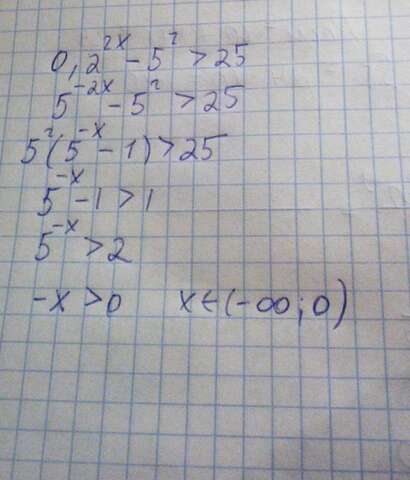 0,2^{2x} - 5^2 > 25
5^{-2x} - 5^2 > 25
5^2(5^{-x} - 1) > 25
5^{-x} - 1 > 1
5^{-x} > 2
-x > 0 x ∈ (-∞; 0)